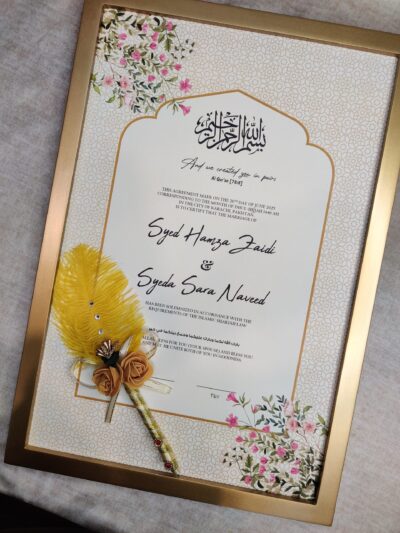 بسم الله الرحمن الرحيم
And we created you in pairs
Al Qur'an [78:8]
THIS AGREEMENT MADE ON THE 20TH DAY OF JUNE 2025
CORRESPONDING TO THE MONTH OF DHUL HIJJAH 1446 AH
IN THE CITY OF KARACHI, PAKISTAN,
IS TO CERTIFY THAT THE MARRIAGE OF
Syed Hamza Zaidi
&
Syeda Sara Naveed
HAS BEEN SOLEMNIZED IN ACCORDANCE WITH THE
REQUIREMENTS OF THE ISLAMIC SHARIAH LAW
بارك الله لكما وبارك عليكما وجمع بينكما في خير
ALLAH BLESS FOR YOU (YOUR SPOUSE) AND BLESS YOU
AND MAY HE UNITE BOTH OF YOU IN GOODNESS.